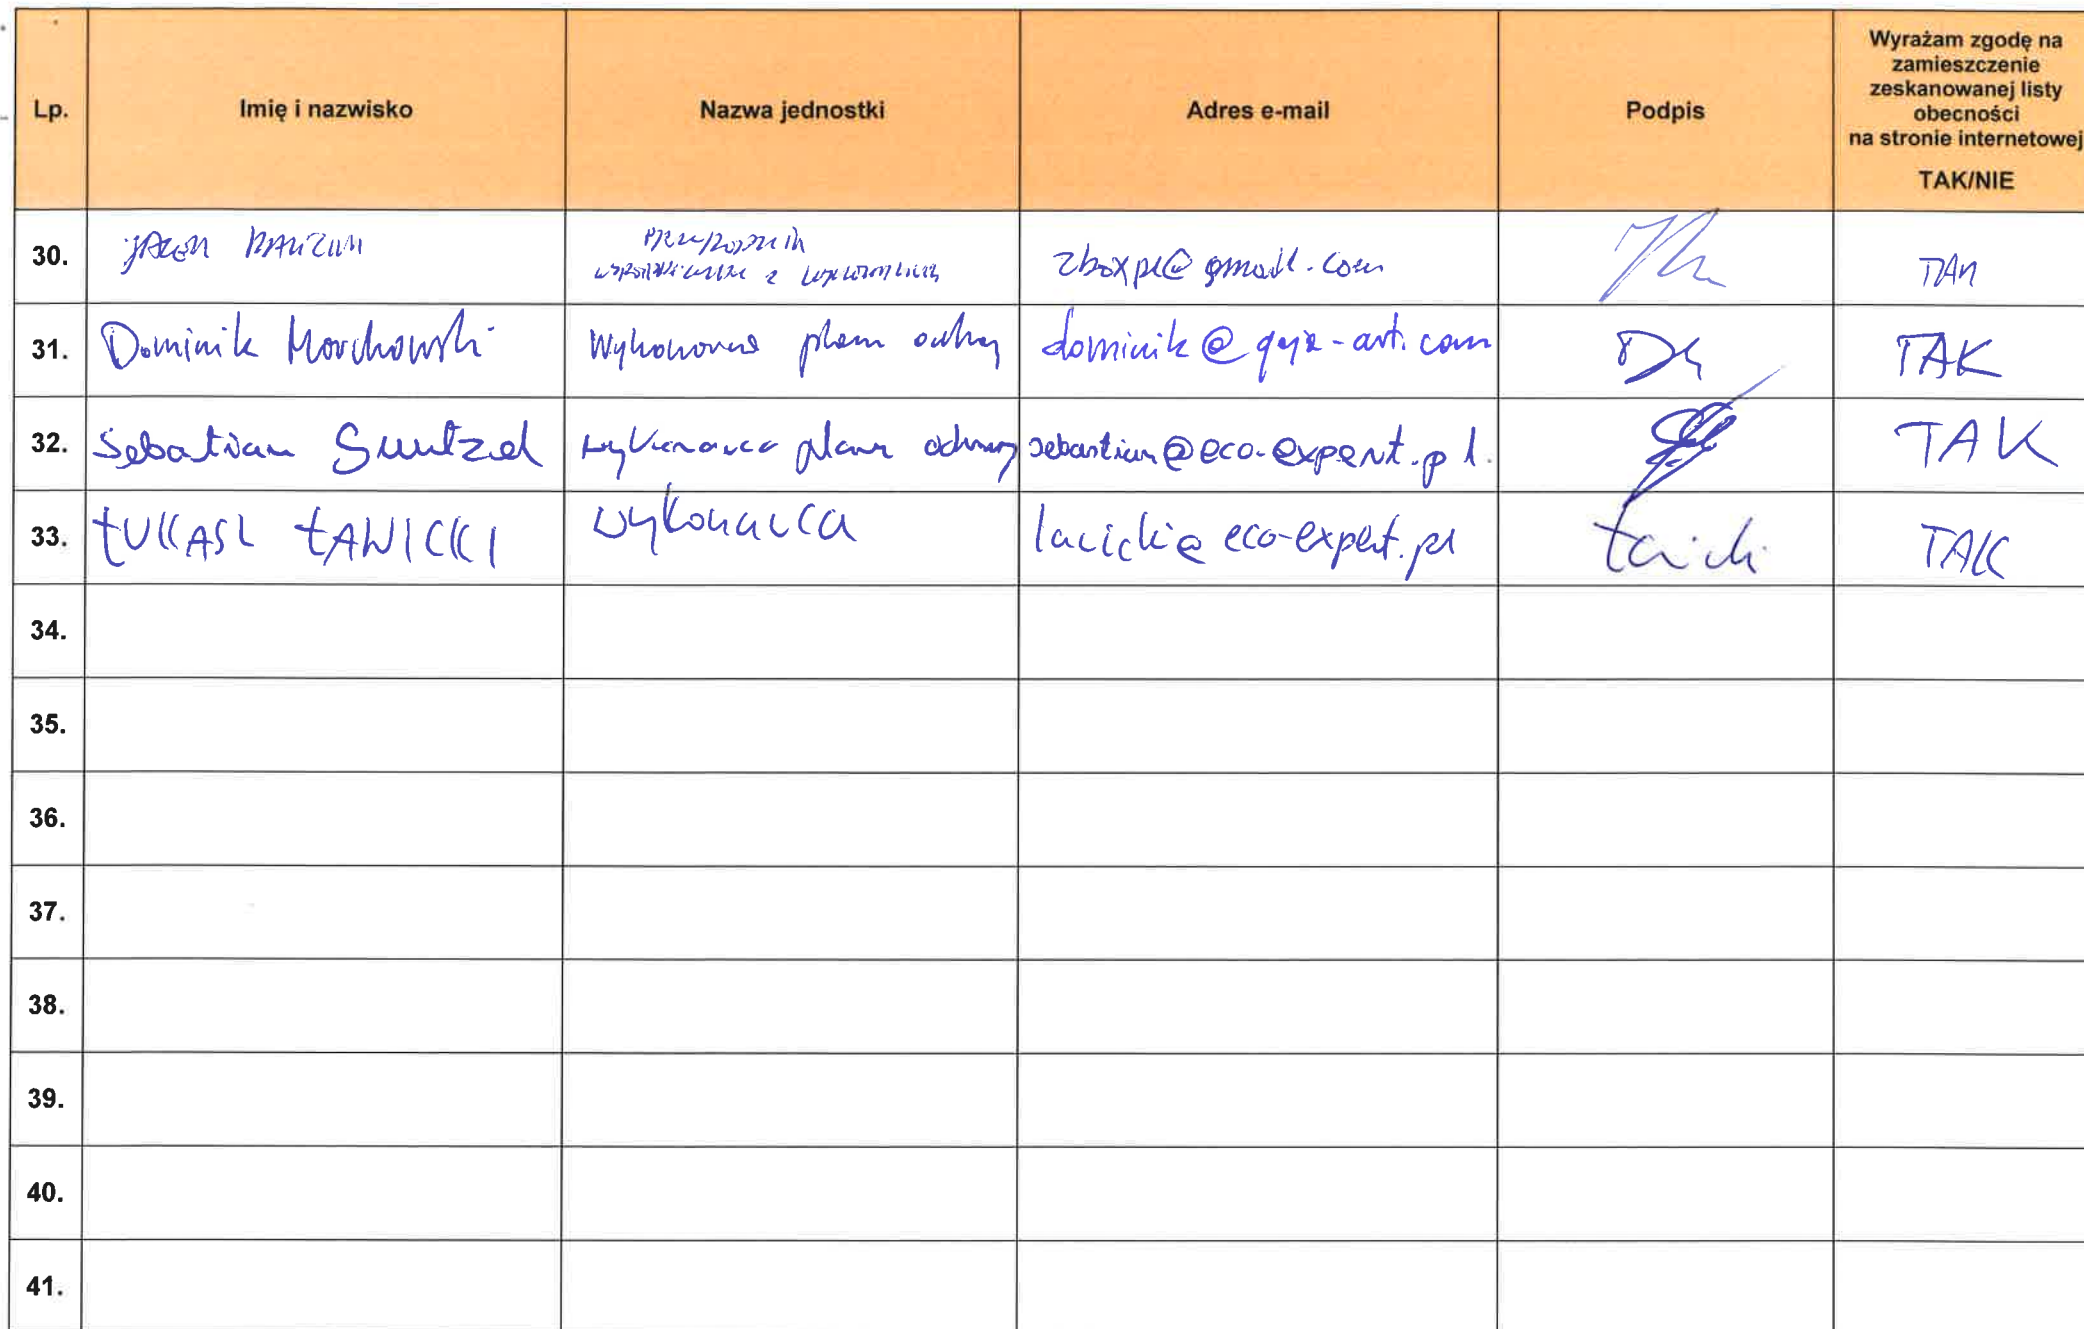 Lp.
Imię i nazwisko
Nazwa jednostki
Adres e-mail
Podpis
Wyrażam zgodę na
zamieszczenie
zeskanowanej listy
obecności
na stronie internetowej
TAK/NIE
30.
zboxpl@gmail.com
TAK
31. Dominik
dominik@gaja-art.com
TAK
32. Sebastian
wykonawca planu ochrony
sebastian@eco-expert.pl.
TAK
33. ŁUKASZ ŁAWICKI
wykonawca
lawicki@eco-expert.pl
TAK
34.
35.
36.
37.
38.
39.
40.
41.